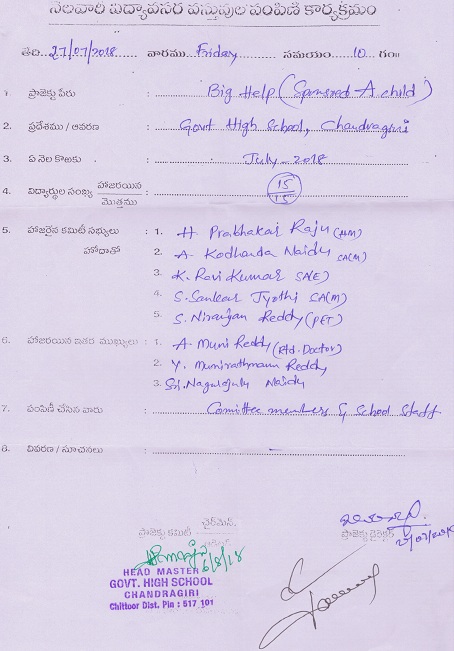 నెలవారీ విద్యావసర వస్తువుల పంపిణీ కార్యక్రమం
తేది. 27/07/2018 వారము Friday సమయం 10 గం॥
1. ప్రాజెక్టు పేరు : Big Help (Sponsored-A child)
2. ప్రదేశము / ఆవరణ : Govt High School, Chandragiri
3. ఏ నెల కొఱకు : July - 2018
4. విద్యార్థుల సంఖ్య హాజరయిన / మొత్తము : 15/15
5. హాజరైన కమిటీ సభ్యులు : 1. H Prabhakar Raju (HM)
హోదాతో 2. A. Kodhanda Naidu SA(M)
3. K. Ravi Kumar SA(E)
4. S. Sankar Jyothi SA(M)
5. S. Niranjan Reddy (PET)
6. హాజరయిన ఇతర ముఖ్యులు : 1. A. Muni Reddy (Rtd. Doctor)
2. Y. Munirathnam Reddy
3. Sri. Nagulaiah Naidu
7. పంపిణీ చేసిన వారు : Comittee members & School Staff
8. వివరణ / సూచనలు :
ఛైర్‌మెన్,
ప్రాజెక్టు కమిటీ
ప్రాజెక్టు డైరెక్టర్
6/8/18
HEAD MASTER
GOVT. HIGH SCHOOL
CHANDRAGIRI
Chittoor Dist. Pin : 517 101